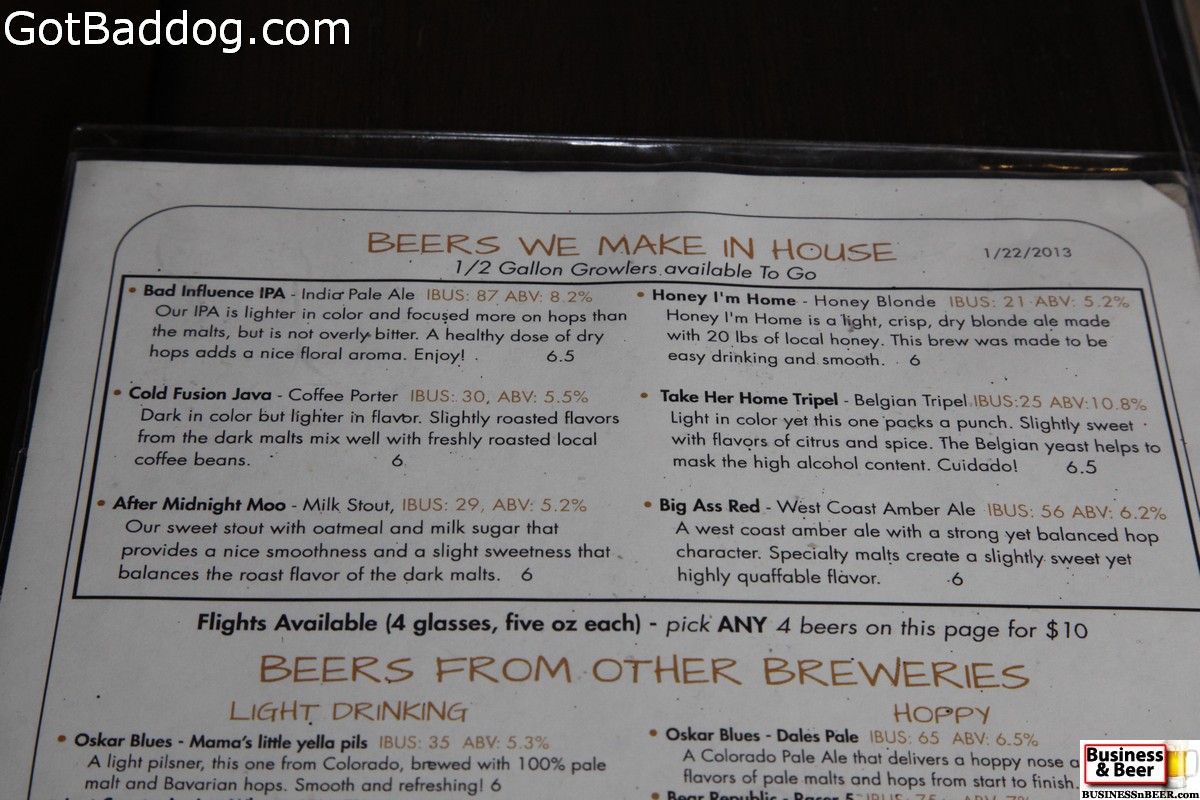 GotBaddog.com
BEERS WE MAKE IN HOUSE
1/22/2013
1/2 Gallon Growlers available To Go
• Bad Influence IPA - India Pale Ale IBUS: 87 ABV: 8.2%
Our IPA is lighter in color and focused more on hops than
the malts, but is not overly bitter. A healthy dose of dry
hops adds a nice floral aroma. Enjoy! 6.5
• Cold Fusion Java - Coffee Porter IBUS: 30, ABV: 5.5%
Dark in color but lighter in flavor. Slightly roasted flavors
from the dark malts mix well with freshly roasted local
coffee beans. 6
• After Midnight Moo - Milk Stout, IBUS: 29, ABV: 5.2%
Our sweet stout with oatmeal and milk sugar that
provides a nice smoothness and a slight sweetness that
balances the roast flavor of the dark malts. 6
• Honey I'm Home - Honey Blonde IBUS: 21 ABV: 5.2%
Honey I'm Home is a light, crisp, dry blonde ale made
with 20 lbs of local honey. This brew was made to be
easy drinking and smooth. 6
• Take Her Home Tripel - Belgian Tripel IBUS:25 ABV:10.8%
Light in color yet this one packs a punch. Slightly sweet
with flavors of citrus and spice. The Belgian yeast helps to
mask the high alcohol content. Cuidado! 6.5
• Big Ass Red - West Coast Amber Ale IBUS: 56 ABV: 6.2%
A west coast amber ale with a strong yet balanced hop
character. Specialty malts create a slightly sweet yet
highly quaffable flavor. 6
Flights Available (4 glasses, five oz each) - pick ANY 4 beers on this page for $10
BEERS FROM OTHER BREWERIES
LIGHT DRINKING
• Oskar Blues - Mama's little yella pils IBUS: 35 ABV: 5.3%
A light pilsner, this one from Colorado, brewed with 100% pale
malt and Bavarian hops. Smooth and refreshing! 6
HOPPY
• Oskar Blues - Dales Pale IBUS: 65 ABV: 6.5%
A Colorado Pale Ale that delivers a hoppy nose a
flavors of pale malts and hops from start to finish.
• Bear Republic - Racer 5
Business
& Beer
BUSINESSnBEER.com